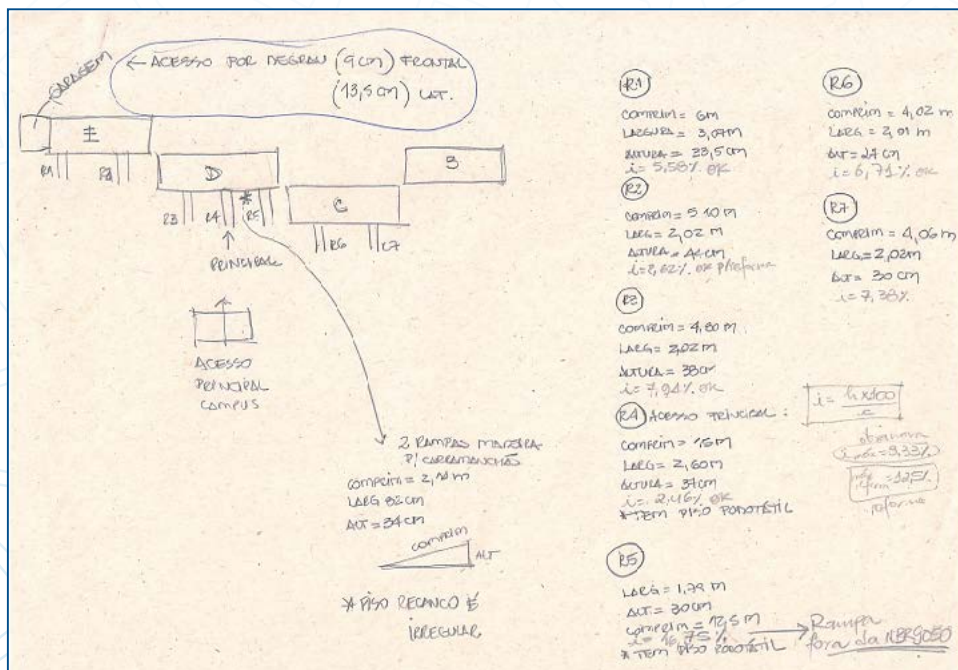 GARAGEM
← ACESSO POR DEGRAU (9cm) FRONTAL
(13,5cm) LAT.
E
R1
R2
D
R3
R4
*
R5
PRINCIPAL
C
R6
B
ACESSO
PRINCIPAL
CAMPUS
2 RAMPAS MADEIRA
P/ CARRAMANCHÃO
LARG 82cm
ALT = 34cm
COMPRIM
ALT
* PISO RECANCO É
IRREGULAR
R1
COMPRIM = 6m
LARGURA = 3,07m
ALTURA = 33,5cm
i = 5,58% OK
R2
COMPRIM = 5.10m
LARG = 2,02m
ALTURA = 44cm
R3
COMPRIM = 4,80m
LARG = 2,02m
ALTURA = 38cm
i = 7,91% OK
R4 ACESSO PRINCIPAL:
COMPRIM = 15m
LARG = 2,60m
ALTURA = 37cm
i = 2,46% OK
* TEM PISO PODOTÁTIL
R5
LARG = 1,79m
ALT = 30cm
i = 16,75%
* TEM PISO PODOTÁTIL
→ Rampa
fora da NBR9050
R6
COMPRIM = 4,02m
LARG = 2,01m
ALT = 27cm
i = 6,71% OK
R7
COMPRIM = 4,06m
LARG = 2,02m
ALT = 30cm
i = 7,38%
i = h x 100
c
obra nova
i máx = 8,33%
= 12,5%
reforma